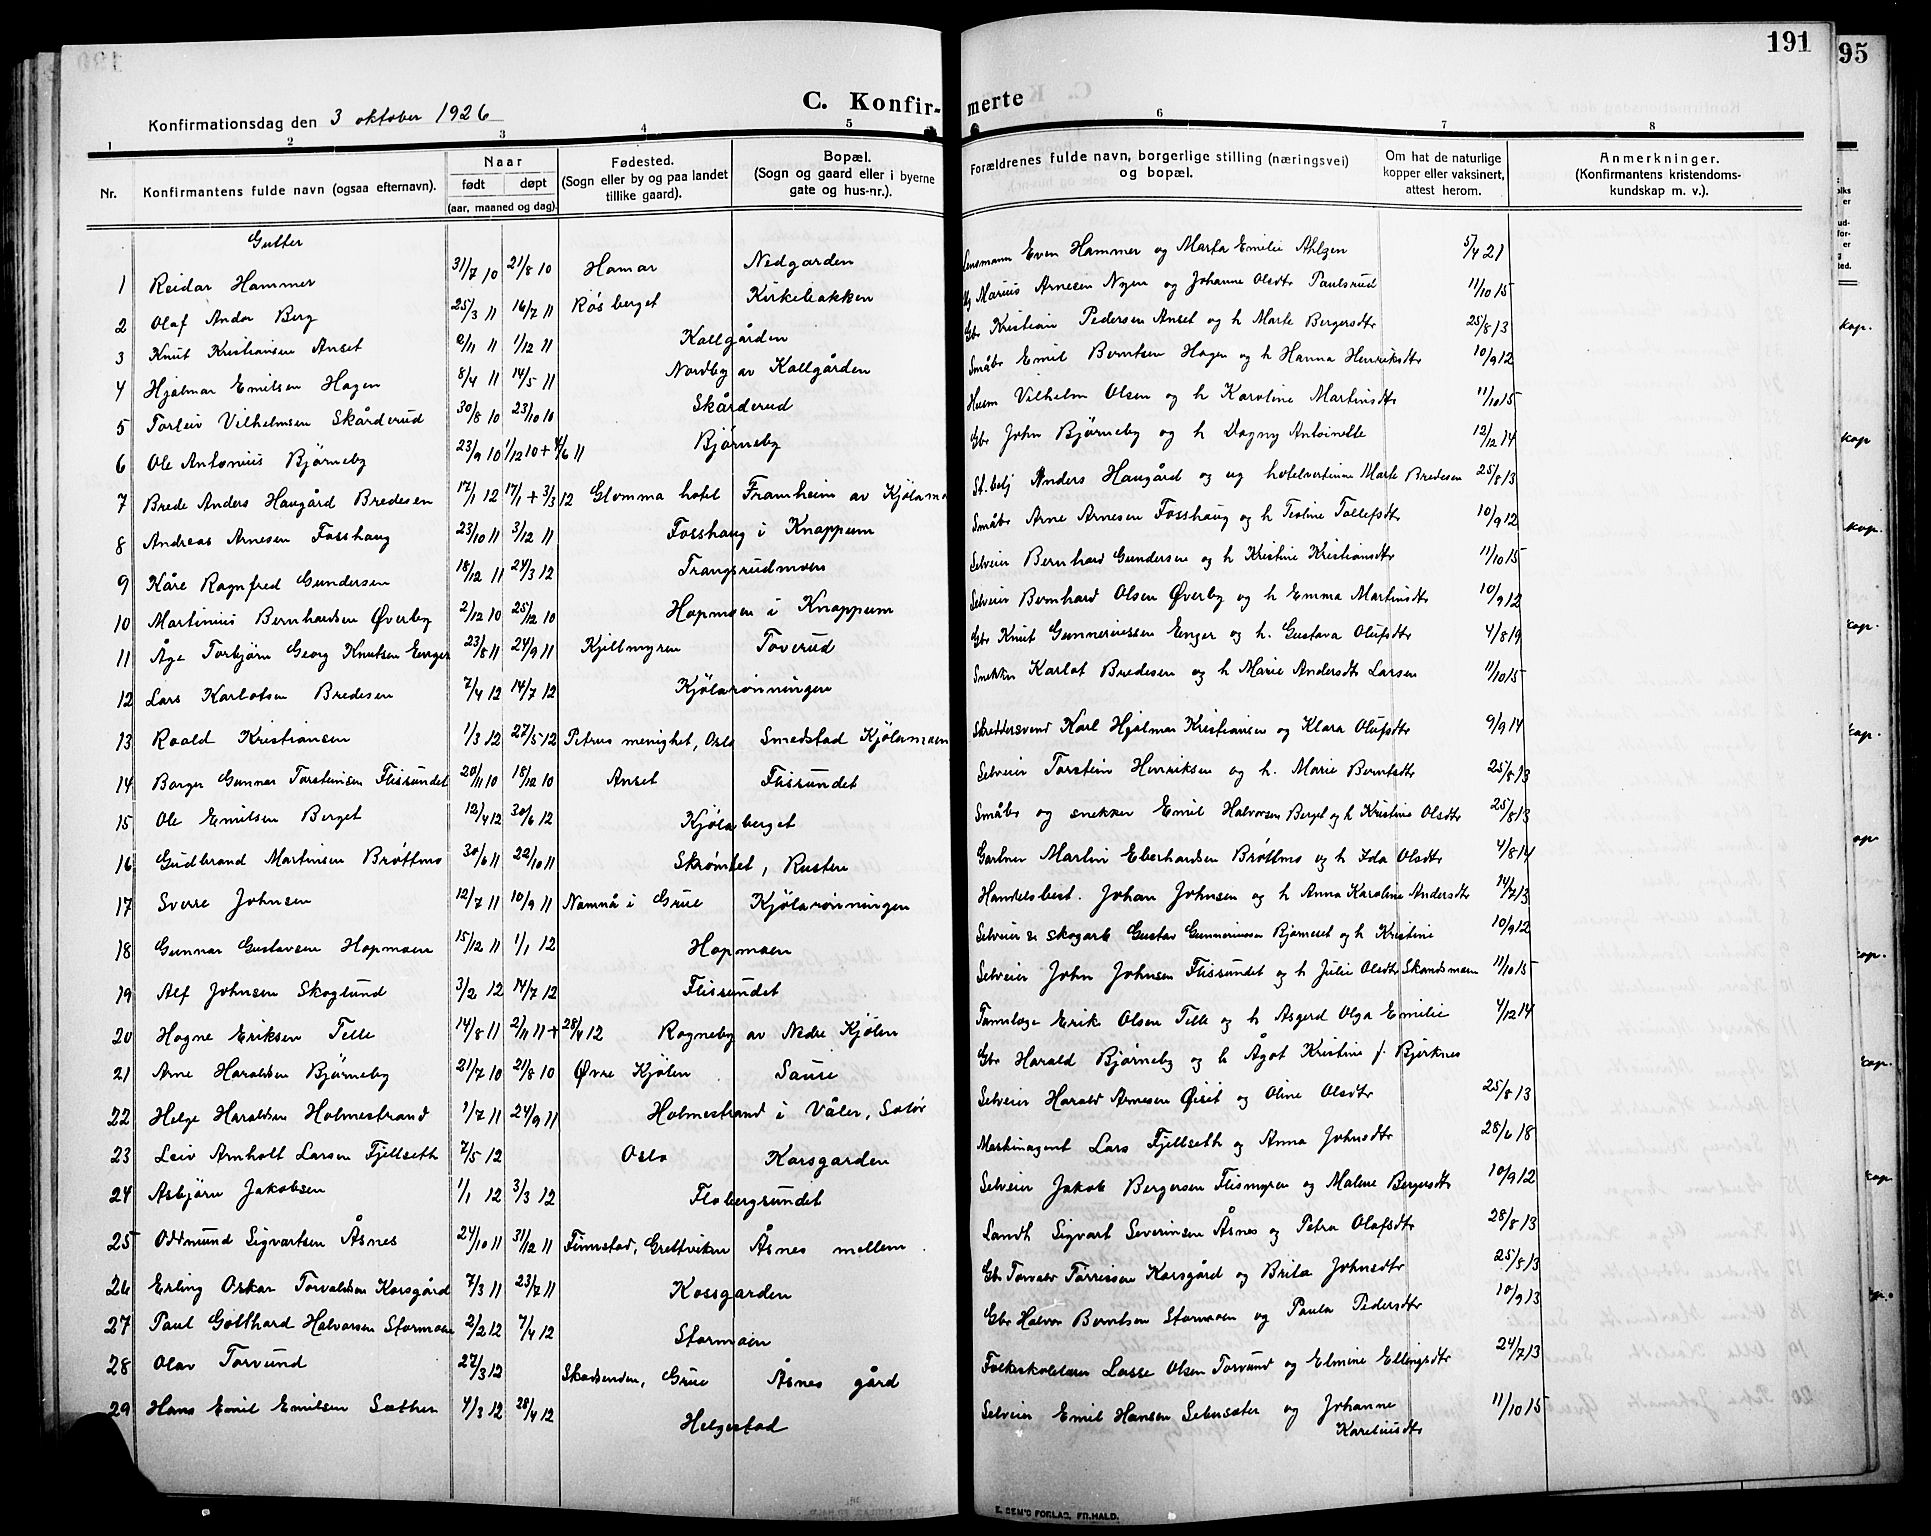 191
95
C. Konfirmerte
Konfirmationsdag den 3 oktober 1926
1 2 3 4 5 6 7 8
Nr. Konfirmantens fulde navn (ogsaa efternavn). Naar født døpt (aar, maaned og dag). Fødested. (Sogn eller by og paa landet tillike gaard). Bopæl. (Sogn og gaard eller i byerne gate og hus-nr.). Forældrenes fulde navn, borgerlige stilling (næringsvei) og bopæl. Om hat de naturlige kopper eller vaksinert, attest herom. Anmerkninger. (Konfirmantens kristendomskundskap m. v.).
Gutter
1 Reidar Hammer 31/7 10 21/8 10 Hamar Nedgarden Lensmann Even Hammer og Marta Emilie Ahlzen 5/4 21
2 Olaf Andor Berg 25/3 11 16/7 11 Røsberget Kirkebakken Marius Arnesen Nyen og Johanne Olsdtr Paulsrud 11/10 15
3 Knut Kristiansen Anset 1/12 11 Kallgården Gbr Kristian Pedersen Anset og h Marte Bergersdtr 25/8 13
4 Hjalmar Emilsen Hagen 8/4 11 14/5 11 Nordby av Kallgården Småbr Emil Berntsen Hagen og h Hanna Henriksdtr 10/9 12
5 Torleiv Vilhelmsen Skårderud 30/8 10 23/10 10 Skårderud Husm Vilhelm Olsen og h Karoline Martinsdtr 11/10 15
6 Ole Antonius Bjørneby 23/9 10 1/12 10 + 4/6 11 Bjørneby Gbr John Bjørneby og h Dagny Antoinette 12/12 14
7 Brede Anders Haugård Bredesen 17/1 12 17/1 + 3/3 12 Glomma hotel Framheim av Kjølarmo St.betj Anders Haugård og ug hotelvertinne Marte Bredesen 25/8 13
8 Andreas Arnesen Fosshaug 23/10 11 3/12 11 Fosshaug i Knappum Småbr Arne Arnesen Fosshaug og h Teoline Tollefsdtr 10/9 12
9 Kåre Ragnfred Gundersen 18/12 11 24/3 12 Trangsrudmoen Selveier Bernhard Gundersen og h Kristine Kristiansdtr 11/10 15
10 Martinius Bernhardsen Øverby 2/12 10 25/12 10 Hopmoen i Knappum Selveier Bernhard Olsen Øverby og h Emma Martinsdtr 10/9 12
11 Åge Torbjørn Georg Knutsen Enger 23/8 11 24/9 11 Kjellmyren Toverud Gbr Knut Gunneriussen Enger og h. Gustava Olufsdtr 4/8 19
12 Lars Karlotsen Bredesen 7/4 12 14/7 12 Kjølarønningen Snekker Karlot Bredesen og h Marie Andersdtr Larsen 11/10 15
13 Roald Kristiansen 1/3 12 27/5 12 Petrus menighet, Oslo Smedstad Kjølarmoen Skreddersvend Karl Hjalmar Kristiansen og Klara Olufsdtr 9/9 14
14 Borger Gunnar Torsteinsen Flisundet 20/11 10 18/12 10 Anset Flisundet Selveier Torstein Henriksen og h. Marie Berntsdtr 25/8 13
15 Ole Emilsen Berget 12/4 12 30/6 12 Kjølaberget Småbr og snekker Emil Halvorsen Berget og h Kristine Olsdtr 25/8 13
16 Gudbrand Martinsen Brøttmo 30/6 11 22/10 11 Skrømhet, Rusten Gartner Martin Eberhardsen Brøttmo og h Ida Olsdtr 4/8 14
17 Sverre Johnsen 12/7 11 10/9 11 Namnå i Grue Kjølarønningen Handelsbest. Johan Johnsen og h Anna Karoline Andersdtr 14/7 13
18 Gunnar Gustavsen Hopmoen 15/12 11 1/1 12 Hopmoen Selveier & skogarb Gustav Gunneriussen Bjørneset og h Kristine 10/9 12
19 Alf Johnsen Skoglund 3/2 12 14/7 12 Flisundet Selveier John Johnsen Flissundet og h Julie Olsdtr Skandsmoen 11/10 15
20 Hogne Eriksen Telle 14/8 11 2/11 11 + 28/4 12 Rogneby av Nedre Kjølen Tannlæge Erik Olsen Telle og h Asgerd Olga Emilie 4/12 14
21 Arne Haraldsen Bjørneby 21/7 10 21/8 10 Øvre Kjølen Sause Gbr Harald Bjørneby og h Ågot Kristine f. Bjerknes
22 Helge Haraldsen Holmestrand 1/7 11 24/9 11 Holmestrand i Våler, Solør Selveier Harald Arnesen Øiset og Oline Olsdtr 25/8 13
23 Leiv Arnholt Larsen Fjellseth 7/5 12 Oslo Korsgarden Maskinagent Lars Fjellseth og Anna Johnsdtr 28/6 18
24 Asbjørn Jakobsen 1/1 12 3/3 12 Flobergsundet Selveier Jakob Bergersen Flismyren og Malene Bergersdtr 10/9 12
25 Oddmund Sigvartsen Åsnes 24/10 11 31/12 11 Finnstad, Grettviken Åsnes mellem Landh Sigvart Severinsen Åsnes og Petra Olafsdtr 28/8 13
26 Erling Oskar Torvaldsen Korsgård 7/3 11 23/7 11 Kossgarden Gbr Torvald Torrissen Korsgård og Brita Johnsdtr 25/8 13
27 Paul Gotthard Halvorsen Stormoen 2/2 12 7/4 12 Stormoen Gbr Halvor Berntsen Stormoen og Paula Pedersdtr 10/9 13
28 Olav Torvund 27/3 12 Skadsenden, Grue Åsnes gård Folkeskolelærer Lasse Olsen Torvund og Elmine Ellingsdtr 24/7 13
29 Hans Emil Emilsen Sæther 4/3 12 28/4 12 Helgestad Selveier Emil Hansen Sebersæter og Johanne Karelinsdtr 11/10 15
E. SEM'S FORLAG, FR.HALD.